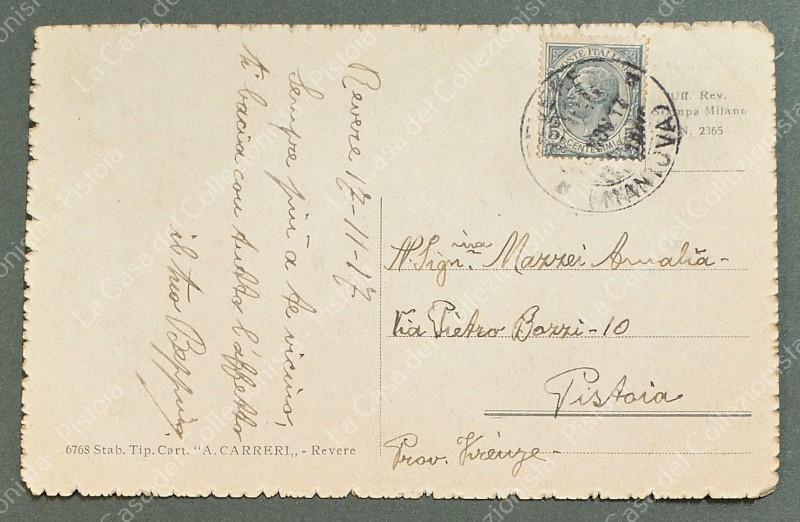 Revere 17-11-17
Sempre più a te vicino,
ti bacia con tutto l'affetto
il tuo Beppino
POSTE ITALIANE
CENTESIMI
(MANTOVA)
Uff. Rev.
Stampa Milano
N. 2365
N. Sign.ina Mazzei Amalia-
Via Pietro Bozzi-10
Pistoia
Prov. Firenze-
6768 Stab. Tip. Cart. "A. CARRERI,, - Revere
La Casa del Collezionista Pistoia